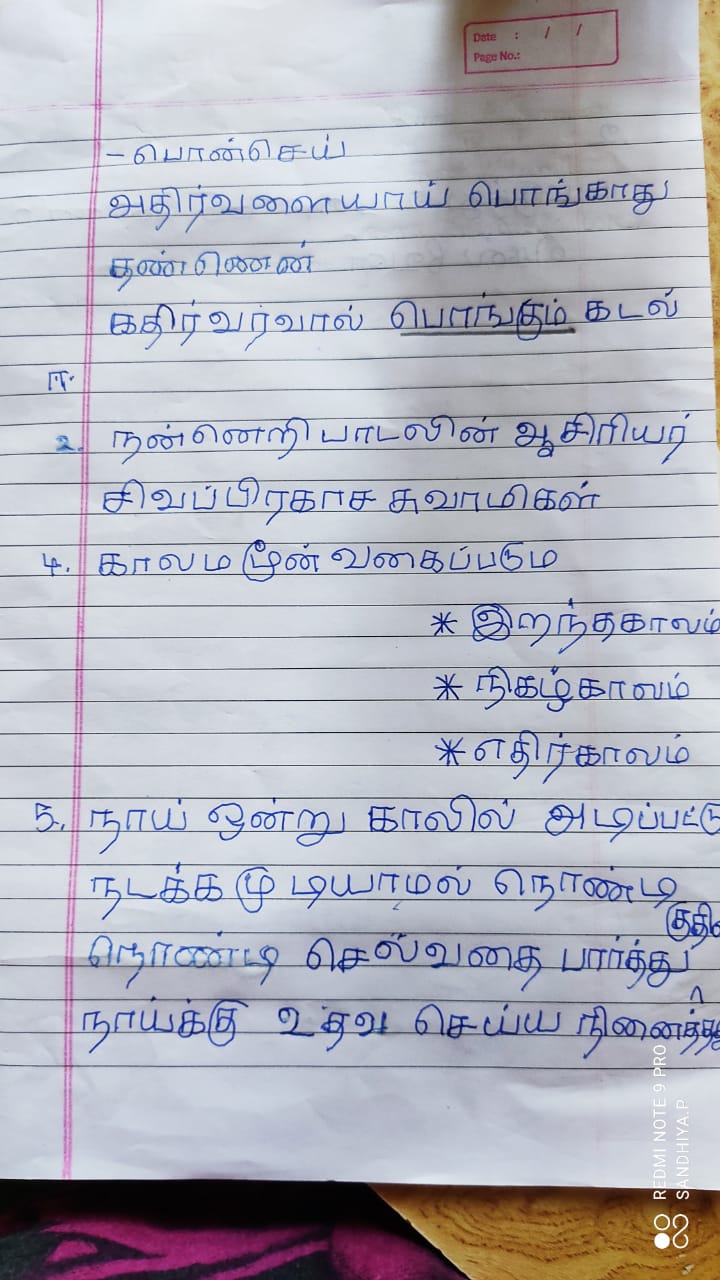 Date : / /
Page No.:
- பொன்செய்
அதிர்வளையாய் பொங்காது
தண்ணென்
கதிர்வர்வால் பொங்கும் கடல்
II.
2. நன்னெறி பாடலின் ஆசிரியர்
சிவப்பிரகாச சுவாமிகள்
4. காலம மூன் வகைப்படும
* இறந்தகாலம்
* நிகழ்காலம்
* எதிர்காலம்
5. நாய் ஒன்று காலில் அடிப்பட்டு
நடக்க முடியாமல் நொண்டி
நொண்டி செல்வதை பார்த்து
நாய்க்கு உதவ செய்ய
REDMI NOTE 9 PRO
SANDHIYA.P